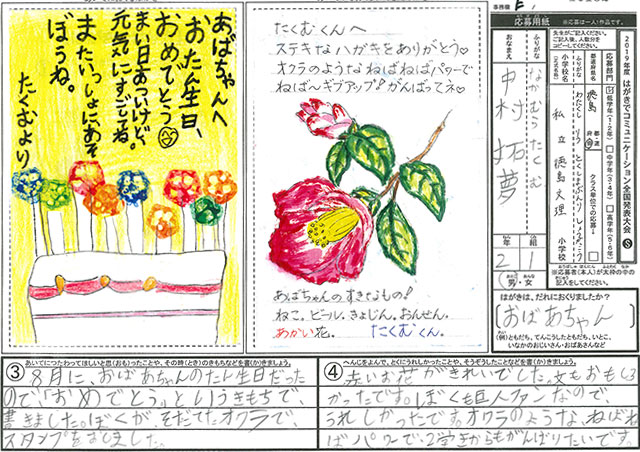 あばちゃんへ
おたん生日、
おめでとう
まい日あついけど、
元気にすごしてね。
またいっしょにあそ
ぼうね。
たくむより
たくむくんへ
ステキなハガキをありがとう♡
オクラのようなねばねばパワーで
ねば〜ギブアップ!がんばってネ♡
あばちゃんのすきなもの!
ねこ。ビール。きょじん。おんせん。
あかい花。 たくむくん。
事務欄
応募用紙 ※応募は一人1作品です。
ふりがな なかむら たくむ
おなまえ 中村 拓夢
2年 1組
男・女
小学校名
私立 徳島文理 小学校
都道府県名
徳島
クラス単位での応募
応募部門
低学年(1・2年)
中学年(3・4年)
高学年(5・6年)
2019年度 はがきでコミュニケーション全国発表大会 S
※応募者(本人)が太枠の中の
記入をしてください。
はがきは、だれにおくりましたか?
おばあちゃん
(例)ともだち、てんこうしたともだち、いとこ、
いなかのおじいさん・おばあさんなど
③ あいてにつたわってほしいと思(おも)ったことや、その時(とき)のきもちなどを書(か)きましょう。
8月に、おばあちゃんのたん生日だった
ので、「おめでとう」というきもちで、
書きました。ぼくが、そだてたオクラで、
スタンプをおしました。
④ へんじをよんで、とくにうれしかったことや、そうぞうしたことなどを書(か)きましょう。
赤いお花がきれいでした。文もおもしろ
かったです。ぼくも巨人ファンなので、
うれしかったです。オクラのような、ねばね
ばパワーで、2学きからもがんばりたいです。